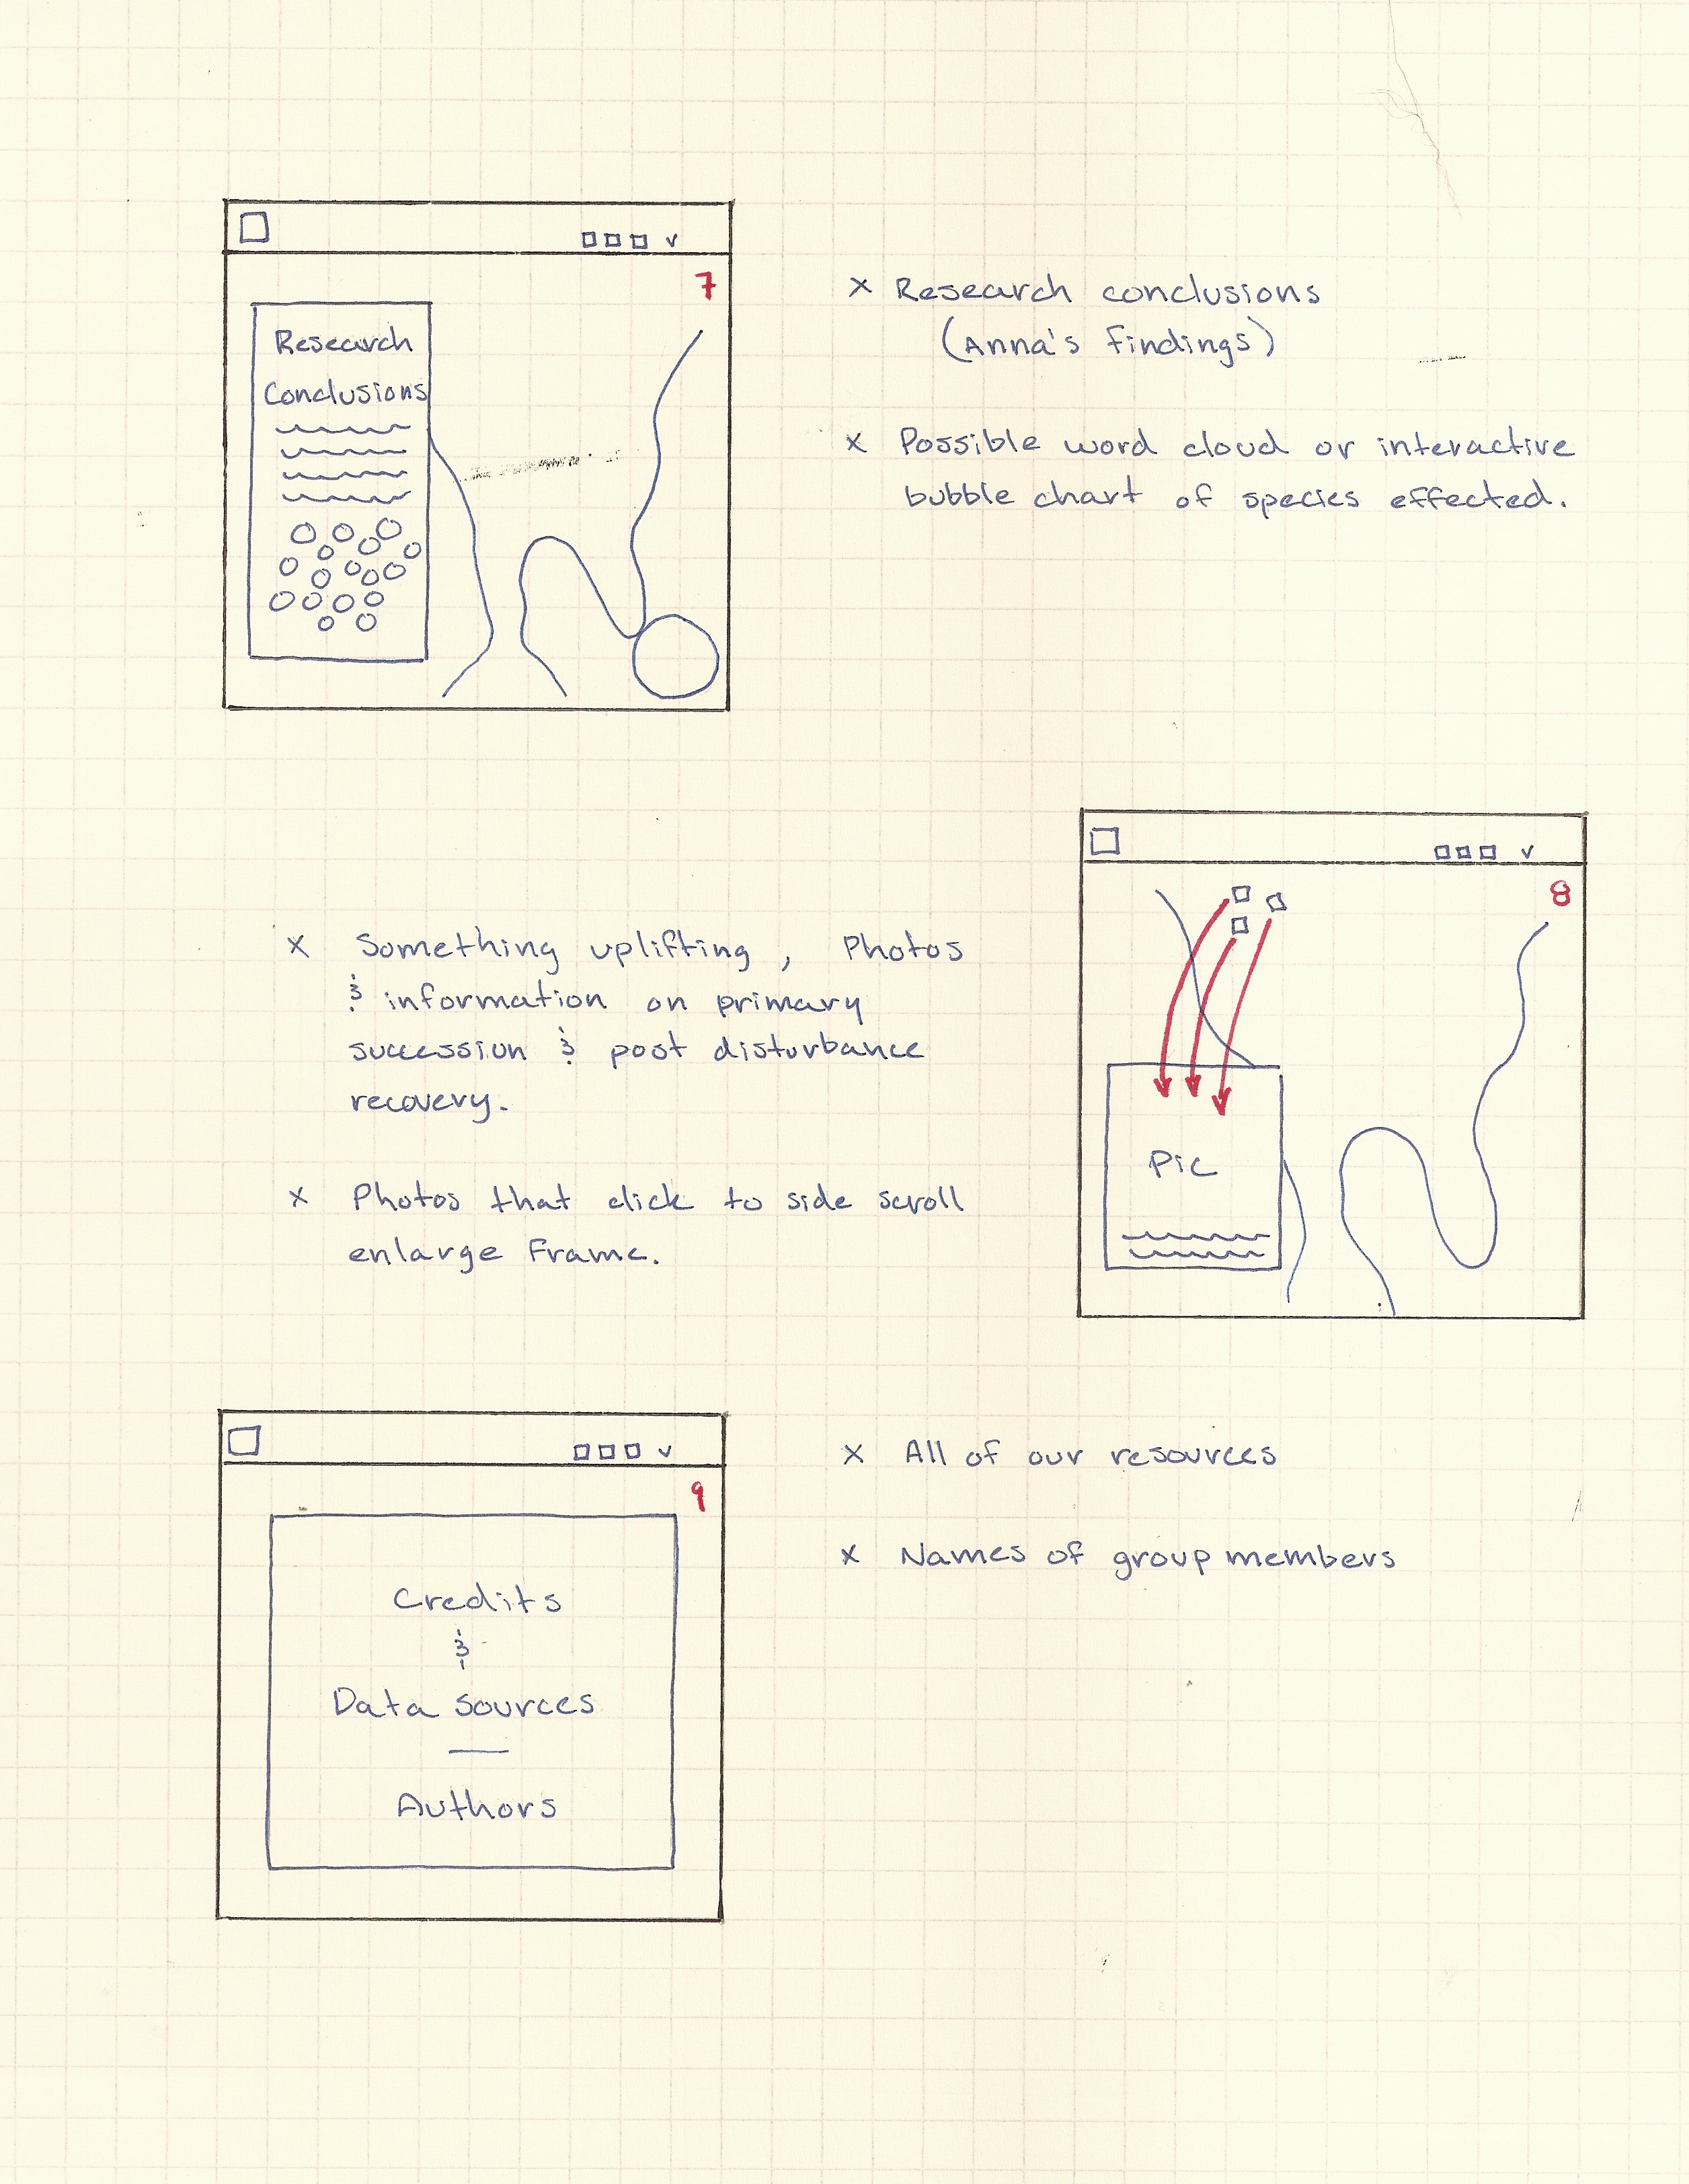 7
Research
Conclusions
x Research conclusions
(Anna's findings)
x Possible word cloud or interactive
bubble chart of species effected.
8
Pic
x Something uplifting, Photos
& information on primary
succession & post disturbance
recovery.
x Photos that click to side scroll
enlarge frame.
9
Credits
&
Data Sources
Authors
x All of our resources
x Names of group members